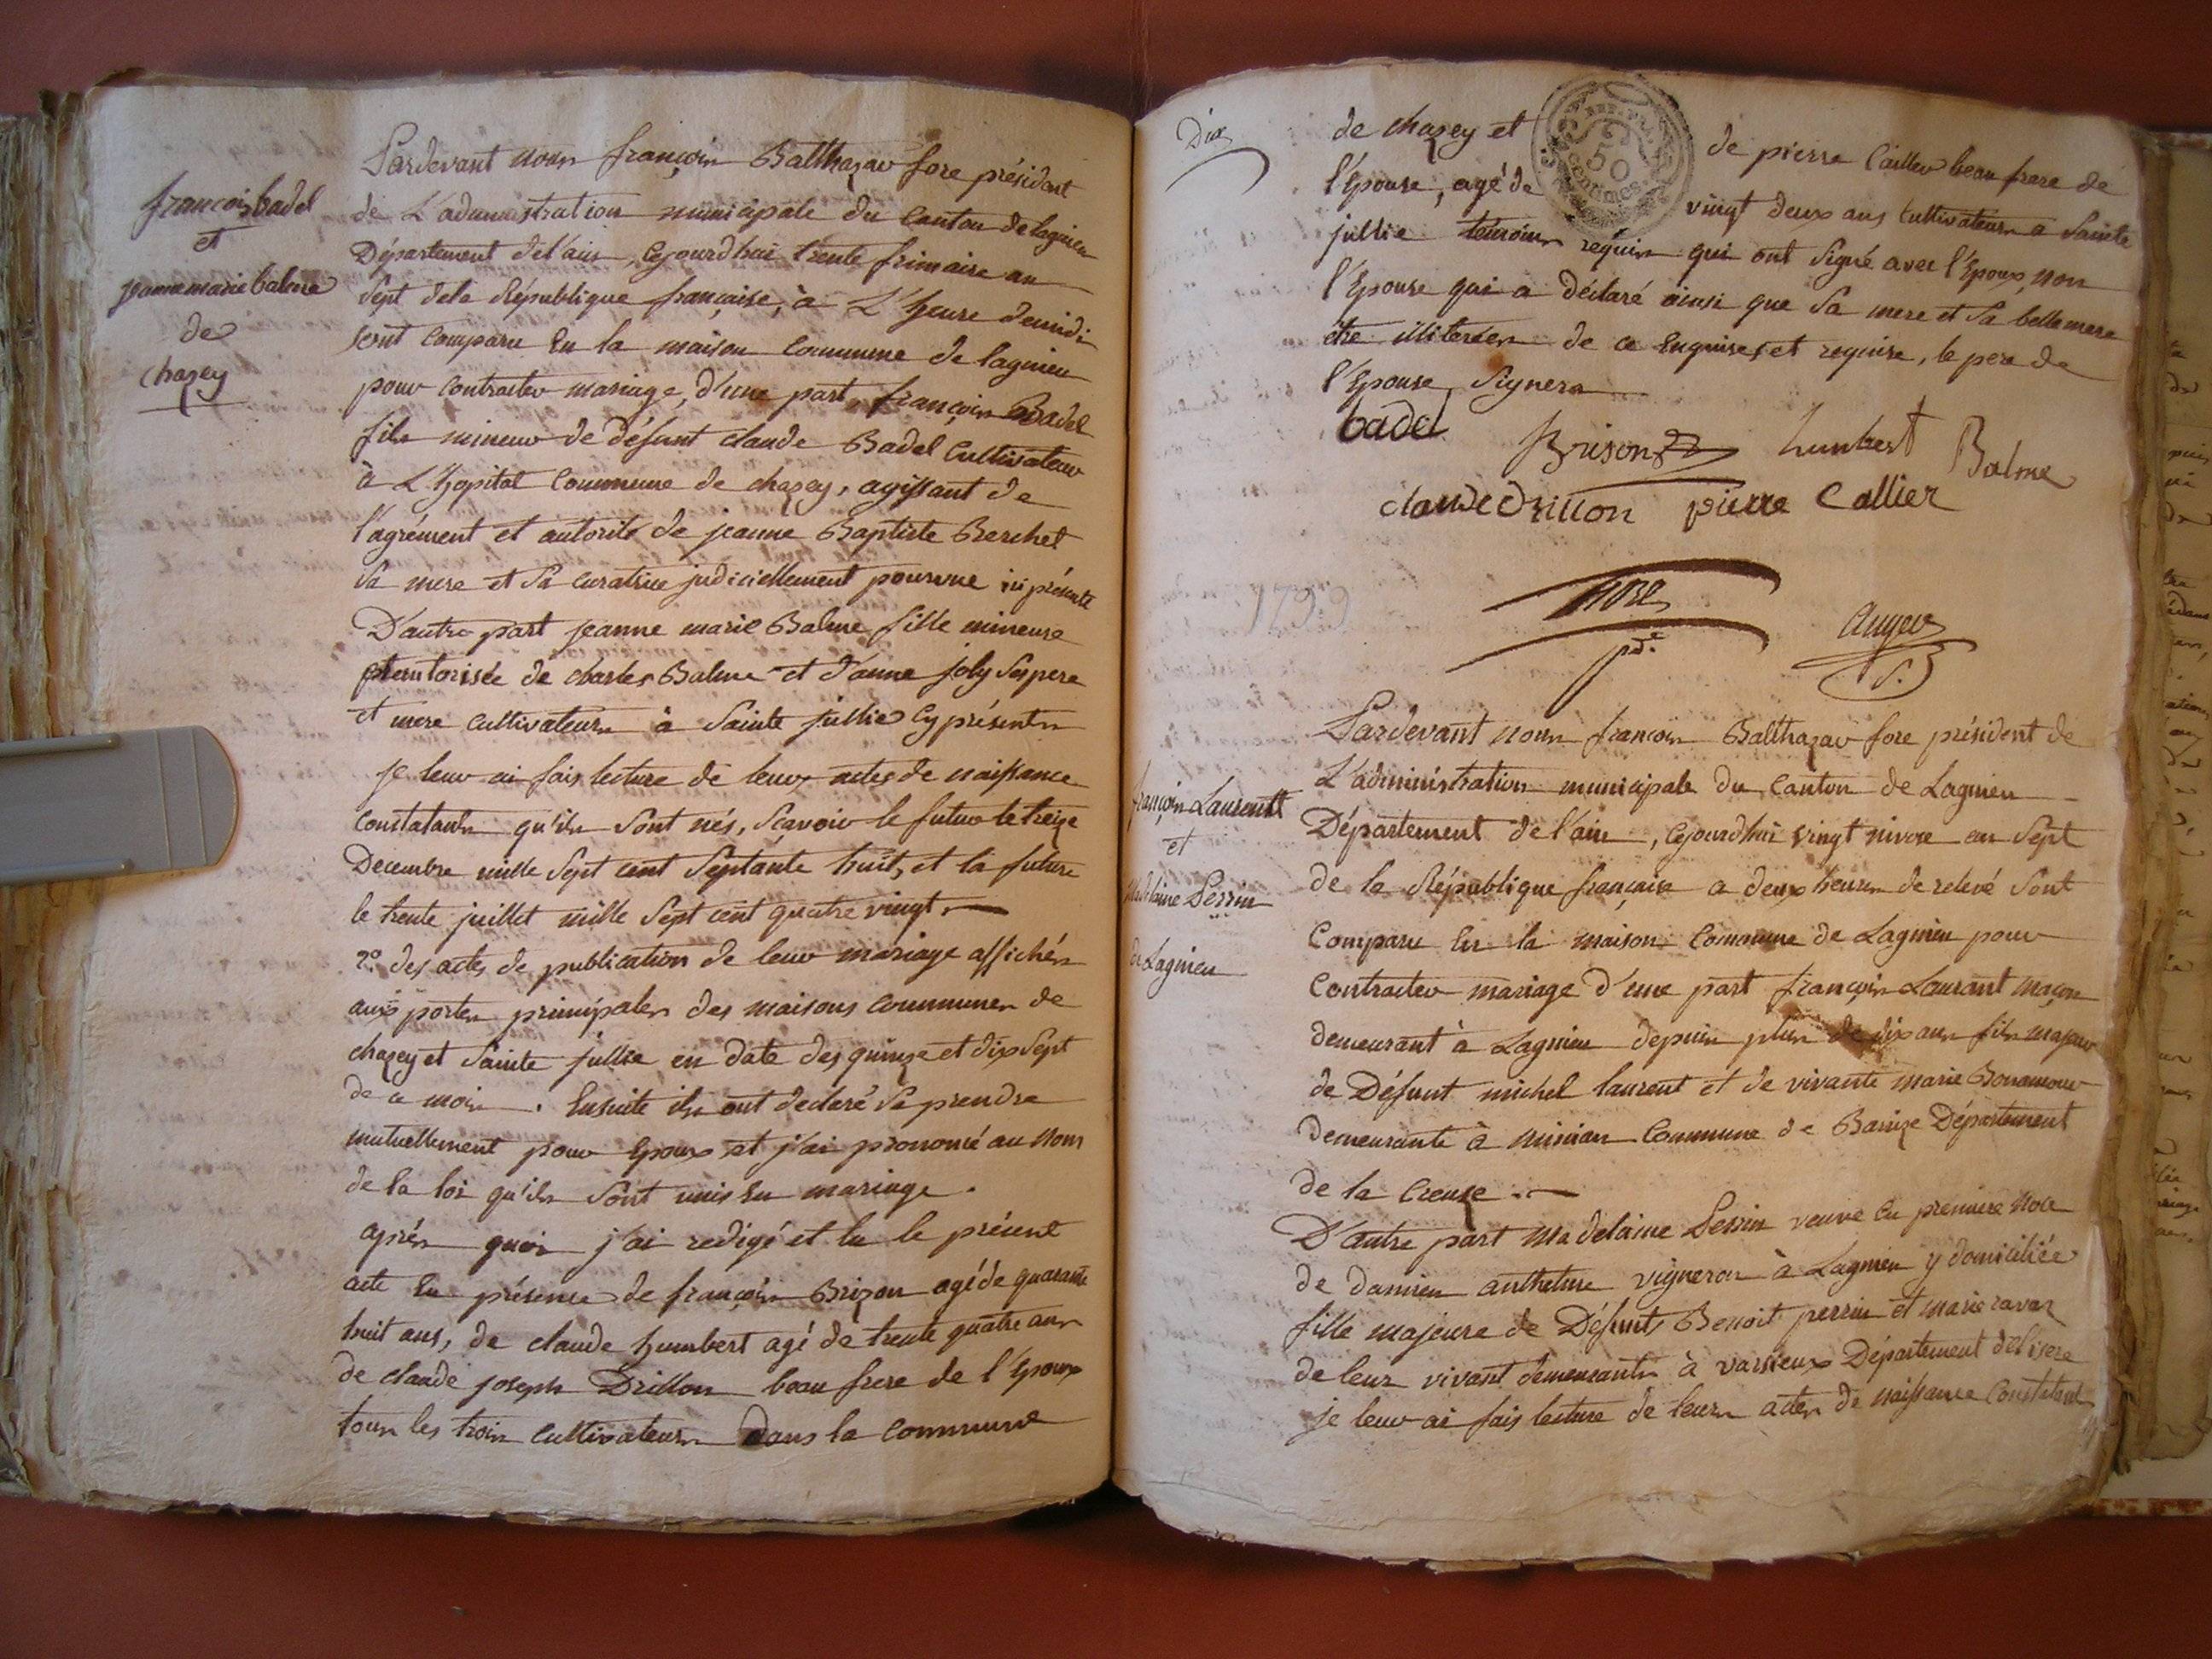 françois badel
et
jeanne marie balme
de
chazey
Pardevant nous françois Balthazar fore président
de L'administration municipale du Canton de lagnieu
Département de l'ain, cejourdhui trente frimaire an
sept dela République française, à L'heure demidi
sont comparu En la maison Commune de lagnieu
pour Contracter mariage, d'une part, françois Badel
fils mineur de défunt claude Badel Cultivateur
à L'hopital Commune de chazey, agissant de
l'agrément et autorité de jeanne Baptiste Berchet
sa mere et sa curatrice judiciellement pourvue ici présente
D'autre part jeanne marie Balme fille mineure
et autorisée de charles Balme et d'anne joly ses pere
et mere cultivateurs à Sainte jullie cy présents
je leur ai fais lecture de leurs actes de naissance
constatants qu'ils sont nés, sçavoir le futur le treize
Decembre mille sept cent septante huit, et la future
le trente juillet mille sept cent quatre vingt.
2o des actes de publication de leur mariage affichés
aux portes principales des maisons communes de
chazey et Sainte jullie en date des quinze et dix sept
de ce mois. Ensuite ils ont declaré se prendre
mutuellement pour Epoux et j'ai prononcé au nom
de la loi qu'ils sont unis En mariage.
après quoi j'ai redigé et lu le présent
acte En présence de françois Brizon agé de quarante
huit ans, de claude humbert agé de trente quatre ans
de claude joseph Drillon beau frere de l'Epoux
tous les trois cultivateurs dans la commune
Dix
de chazey et de pierre Caillet beau frere de
l'Epouse, agé de vingt deux ans Cultivateurs a Sainte
jullie témoins requis qui ont signé avec l'Epoux, non
l'Epouse qui a déclaré ainsi que sa mere et sa belle mere
être illiterées de ce Enquises et requise, le pere de
l'Epouse signera
REP. FRA.
50
centimes
badel
Brison humbert Balme
claude drillon pierre Callier
1799
fore
pdt.
Auger
S.
françois Laurentt
et
Madelaine Perrin
de Lagnieu
Pardevant nous françois Balthazar fore président de
L'administration municipale du Canton de Lagnieu
Département de l'ain, cejourdhui vingt nivose an sept
de la République française a deux heures de relevé sont
comparu En la maison Commune de Lagnieu pour
Contracter mariage d'une part françois Laurant maçon
demeurant à Lagnieu depuis plus de dix ans fils majeur
de Défunt michel laurent et de vivante marie Bonamour
demeurante à Commune de Banize Département
de la Creuze.
D'autre part Madelaine Perrin veuve En premiere noce
de damien vigneron à Lagnieu y domiciliée
fille majeure de Défunts Benoit perrin et marie ravaz
de leur vivant demeurants à varsieux Département de l'isere
je leur ai fais lecture de leurs actes de naissance Constatant